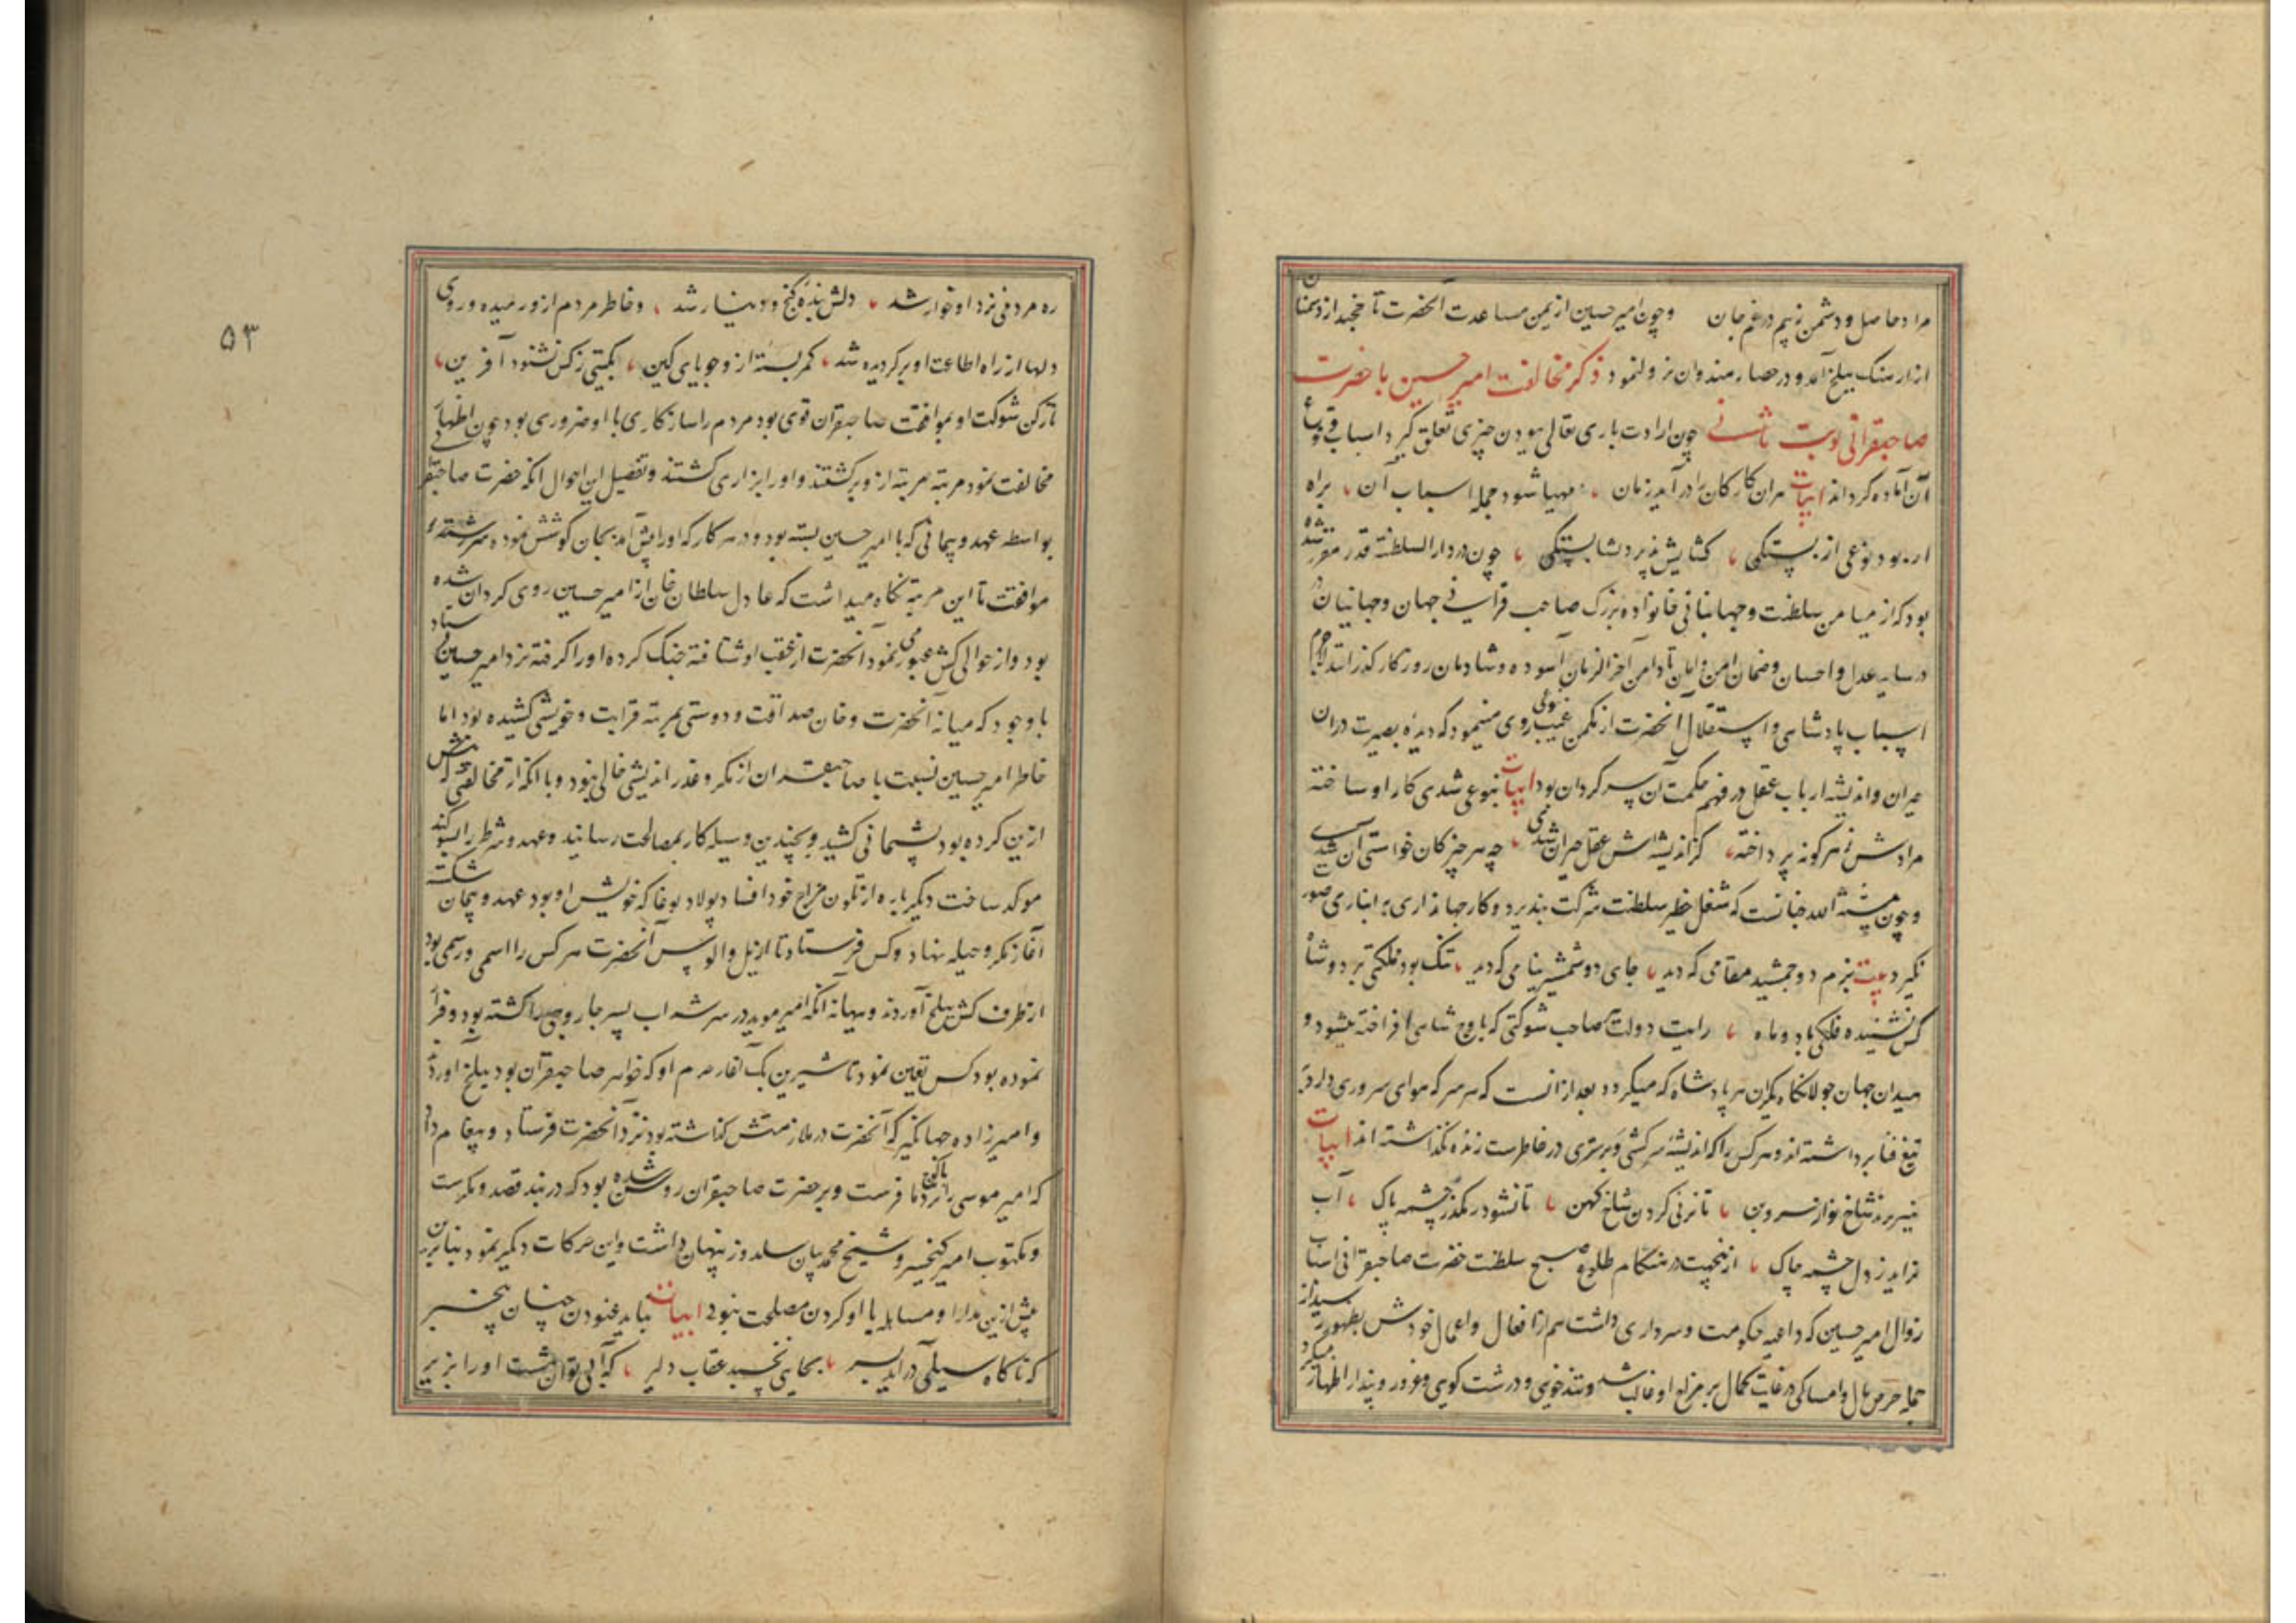 مراد حاصل و دشمن ز بیم در غم جان وچون امیر حسین از یمن مساعدت آنحضرت
از ارسنک ببلخ آمد و در حصار هندوان نزول نمود ذکر مخالفت امیر حسین با حضرت
صاحبقرانی نوبت ثانی چون ارادت باری تعالی ببودن چیزی تعلق گیرد اسباب وقوع
آن آماده کرداند ابیات هران کار کان را در آید زمان مهیا شود جمله اسباب آن براه
ار بود نوعی از بستکی کشایش پذیرد بشایستکی چون در دار السلطنه قدر مقرر شده
بود که از میامن سلطنت و جهانبانی خانواده بزرک صاحب قرانی جهان و جهانیان
در سایه عدل و احسان و ضمان امن و امان تا دامن آخر الزمان آسوده و شادمان روزکار کذرانند لاجرم
اسباب پادشاهی و استقلال آنحضرت از مکمن غیب بنوعی روی مینمود که دیده بصیرت دران
حیران و اندیشه ارباب عقل در فهم حکمت آن سر کردان بود ابیات بنوعی شدی کار او ساخته
مرادش ز هر کونه پرداخته کز اندیشه اش عقل حیران شدی چه هر چیز کان خواستی آن شدی
و چون سنة الله چنانست که شغل خطیر سلطنت شرکت نپذیرد و کار جهانداری بانبازی صورت
نکیرد بیت بزم دو جمشید مقامی که دید جای دو شمشیر نیامی که دید تنک بود مملکتی بر دو شاه
کس نشنیده فلکی با دو ماه رایت دولت صاحب شوکتی که باوج شاهی افراخته میشود و
میدان جهان جولانکاه یکران هر پادشاه که میکردد بعد از انست که هر سر که هوای سروری دارد
تیغ فنا برداشته اند و هر کس را که اندیشه سر کشی و برتری در خاطرست زنده نکذاشته اند ابیات
میسر نزند شاخ نو از سرو بن تا نزنی کردن شاخ کهن تا نشود رهکذر چشمه پاک آب
نزاید ز دل چشمه چاک ازینجهت در هنکام طلوع صبح سلطنت حضرت صاحبقرانی اسباب
زوال امیر حسین که داعیه حکومت و سرداری داشت هم از افعال و اعمال خودش بظهور میرسید از
جمله حرص مال و امساکی در غایت کمال بر مزاج او غالب شد و تند خویی و درشت کویی و غرور و پندار اظهار میکرد
ره مردمی نزد او خوار شد دلش بنده کنج و دینار شد و خاطر مردم ازو رمیده و روی
دلها از راه اطاعت او بر کردیده شد کمر بسته از وجویای کین بکیتی ز کس نشنود آفرین
تا رکن شوکت او بموافقت صاحبقران قوی بود مردم را سازکاری با او ضروری بود چون اظهار
مخالفت نمود مرتبه مرتبه ازو برکشتند و اورا بزاری کشتند و تفصیل این احوال انکه حضرت صاحبقران
بواسطه عهد و پیمانی که با امیر حسین بسته بود و در هر کار که اورا پیش آمد بجان کوشش نموده سررشته
موافقت تا این مرتبه نکاه میداشت که عادل سلطان خان از امیر حسین روی کردان شده
بود و از حوالی کش عبور می نمود آنحضرت از عقب او شتافته جنک کرده اورا کرفته نزد امیر حسین فرستاد
با وجود که میانه آنحضرت و خان صداقت و دوستی بمرتبه قرابت و خویشی کشیده بود اما
خاطر امیر حسین نسبت با صاحبقران از مکر و غدر اندیشی خالی نبود و با انکه از مخالفتی که پیش
ازین کرده بود پشیمانی کشید و بچندین وسیله کار بمصالحت رسانید و عهد و شرط را بسوکند
موکد ساخت دیکر باره از تلون مزاج خود افساد پولاد بوغا که خویش او بود عهد و پیمان شکسته
آغاز مکر و حیله نهاد و کس فرستاد تا از ایل والوس آنحضرت هر کس را اسمی و رسمی بود
از طرف کش ببلخ آوردند و ببهانه انکه امیر موید در سرشه اب پسر جاروجی را کشته بود و فرار
نموده بود کس تعین نمود تا شیرین بک آغا حرم او که خواهر صاحبقران بود ببلخ اورد
و امیرزاده جهانکیر که آنحضرت در ملازمتش کذاشته بود نزد آنحضرت فرستاد و پیغام داد
که امیر موسی را باکوچ نزد ما فرست و بر حضرت صاحبقران روشن شده بود که در بند قصد و مکرست
و مکتوب امیر کیخسرو و شیخ محمد بیان سلدوز پنهان داشت و این حرکات دیکر نمود بنابرین
پیش ازین مدارا و مساهله با او کردن مصلحت نبود ابیات نباید غنودن چنان بیخبر
که ناکاه سیلی در آید بسر بجایی نخسبد عقاب دلیر که آبی توان هشت اورا بزیر
۵۳